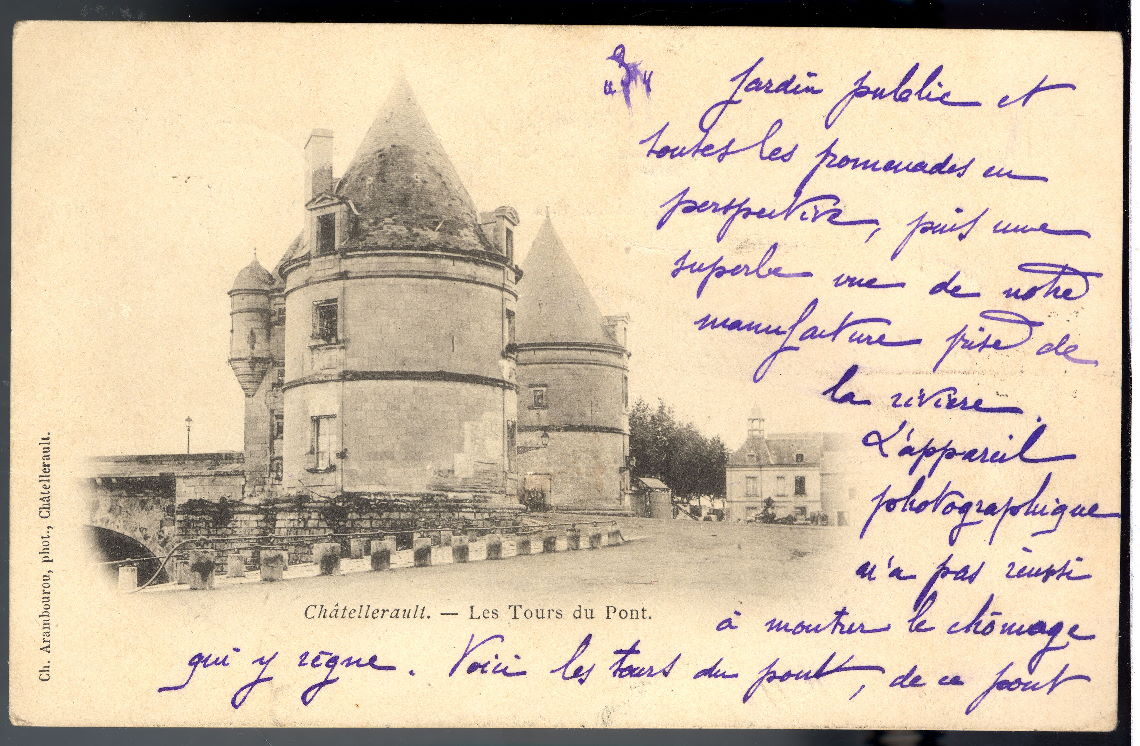 " 3 "
Jardin public et
toutes les promenades en
perspective, puis une
superbe vue de notre
manufacture prise de
la rivière.
L'appareil
photographique
n'a pas réussi
à montrer le chômage
qui y règne. Voici les tours du pont, de ce pont
Châtellerault. — Les Tours du Pont.
Ch. Arambourou, phot., Châtellerault.